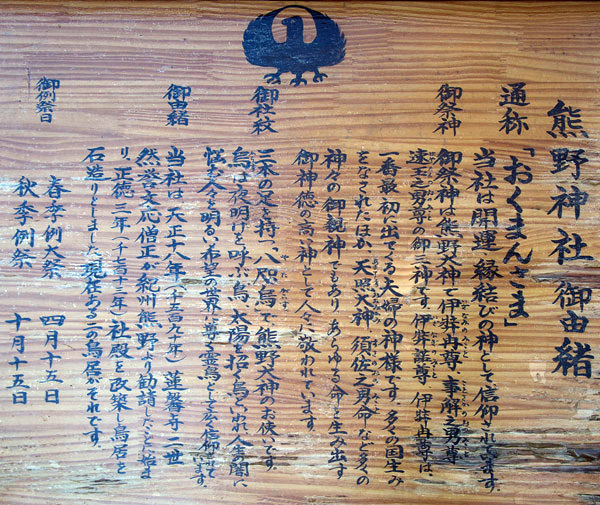 熊野神社御由緒
通称「おくまんさま」
当社は開運・縁結びの神として信仰されてます。
御祭神
御祭神は熊野大神で伊弉冉尊・事解之男尊
速玉之男尊の御三神です。伊弉諾尊・伊弉冉尊は、
一番最初に出てくる夫婦の神様です。多くの国生み
をなされたほか、天照大神、須佐之男命など多くの
神々の御親神でもあり、あらゆる命を生み出す
御神徳の高い神として人々に敬われています。
御社紋
三本の足を持つ八咫烏で熊野大神のお使いです。
烏は夜明けを呼ぶ烏、太陽を招く烏といわれ、人の闇に
悩む人を明るい希望の世界へ導く霊烏として厚く信仰されて
います。
御由緒
当社は、天正十八年(千五百九十年)蓮馨寺二世
然誉文応僧正が紀州熊野より勧請したことに始ま
り、正徳三年(千七百十三年)社殿を改築し鳥居を
石造りとしました。現在ある二の鳥居がそれです。
御例祭日
春季例大祭 四月十五日
秋季例祭 十月十五日